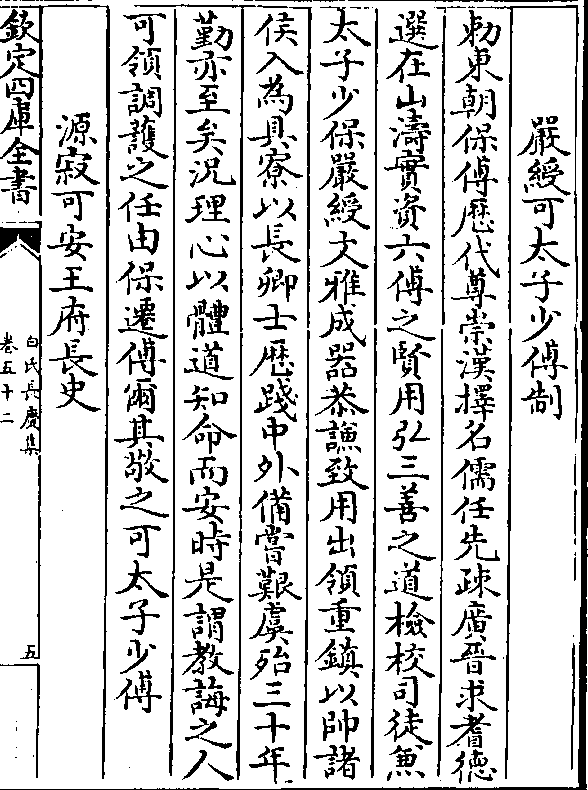 嚴綬可太子少傅制
勅東朝保傅歴代尊崇漢擇名儒任先疎廣晉求耆德
選在山濤實資六傅之賢用弘三善之道檢校司徒兼
太子少保嚴綬文雅成器恭謙致用出領重鎮以帥諸
侯入為具寮以長卿士歴踐中外備嘗艱虞殆三十年
勤亦至矣況理心以體道知命而安時是謂教誨之人
可領調護之任由保遷傅爾其敬之可太子少傅
源寂可安王府長史
欽定四庫全書
白氏長慶集
卷五十二
五